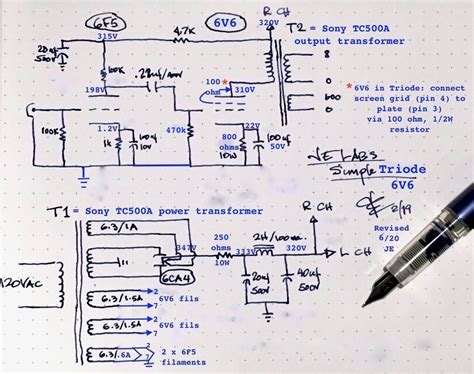 6F5
6V6
R CH
320V
315V
4.7K
T2 = Sony TC500A
output transformer
20uf
500V
60K
.22uf/400V
198V
100
ohm
*
310V
8
0
600
0
*6V6 in Triode: connect
screen grid (pin 4) to
plate (pin 3)
via 100 ohm, 1/2W
resistor
100K
1.2V
1k
100uf
10V
470k
22V
800
ohms
10W
100uf
50V
JE LABS
Simple Triode
6V6
2/19
Revised
6/20
JE
T1 = Sony TC500A power transformer
R CH
6.3/1A
347V
250
ohms
10W
2H/100ma.
320V
L CH
6CA4
20uf
500V
40uf
500V
120VAC
6.3/1.5A
2
7
6V6 fils
6.3/1.5A
2
7
6V6 fils
6.3/.6A
2
7
2 x 6F5
filaments